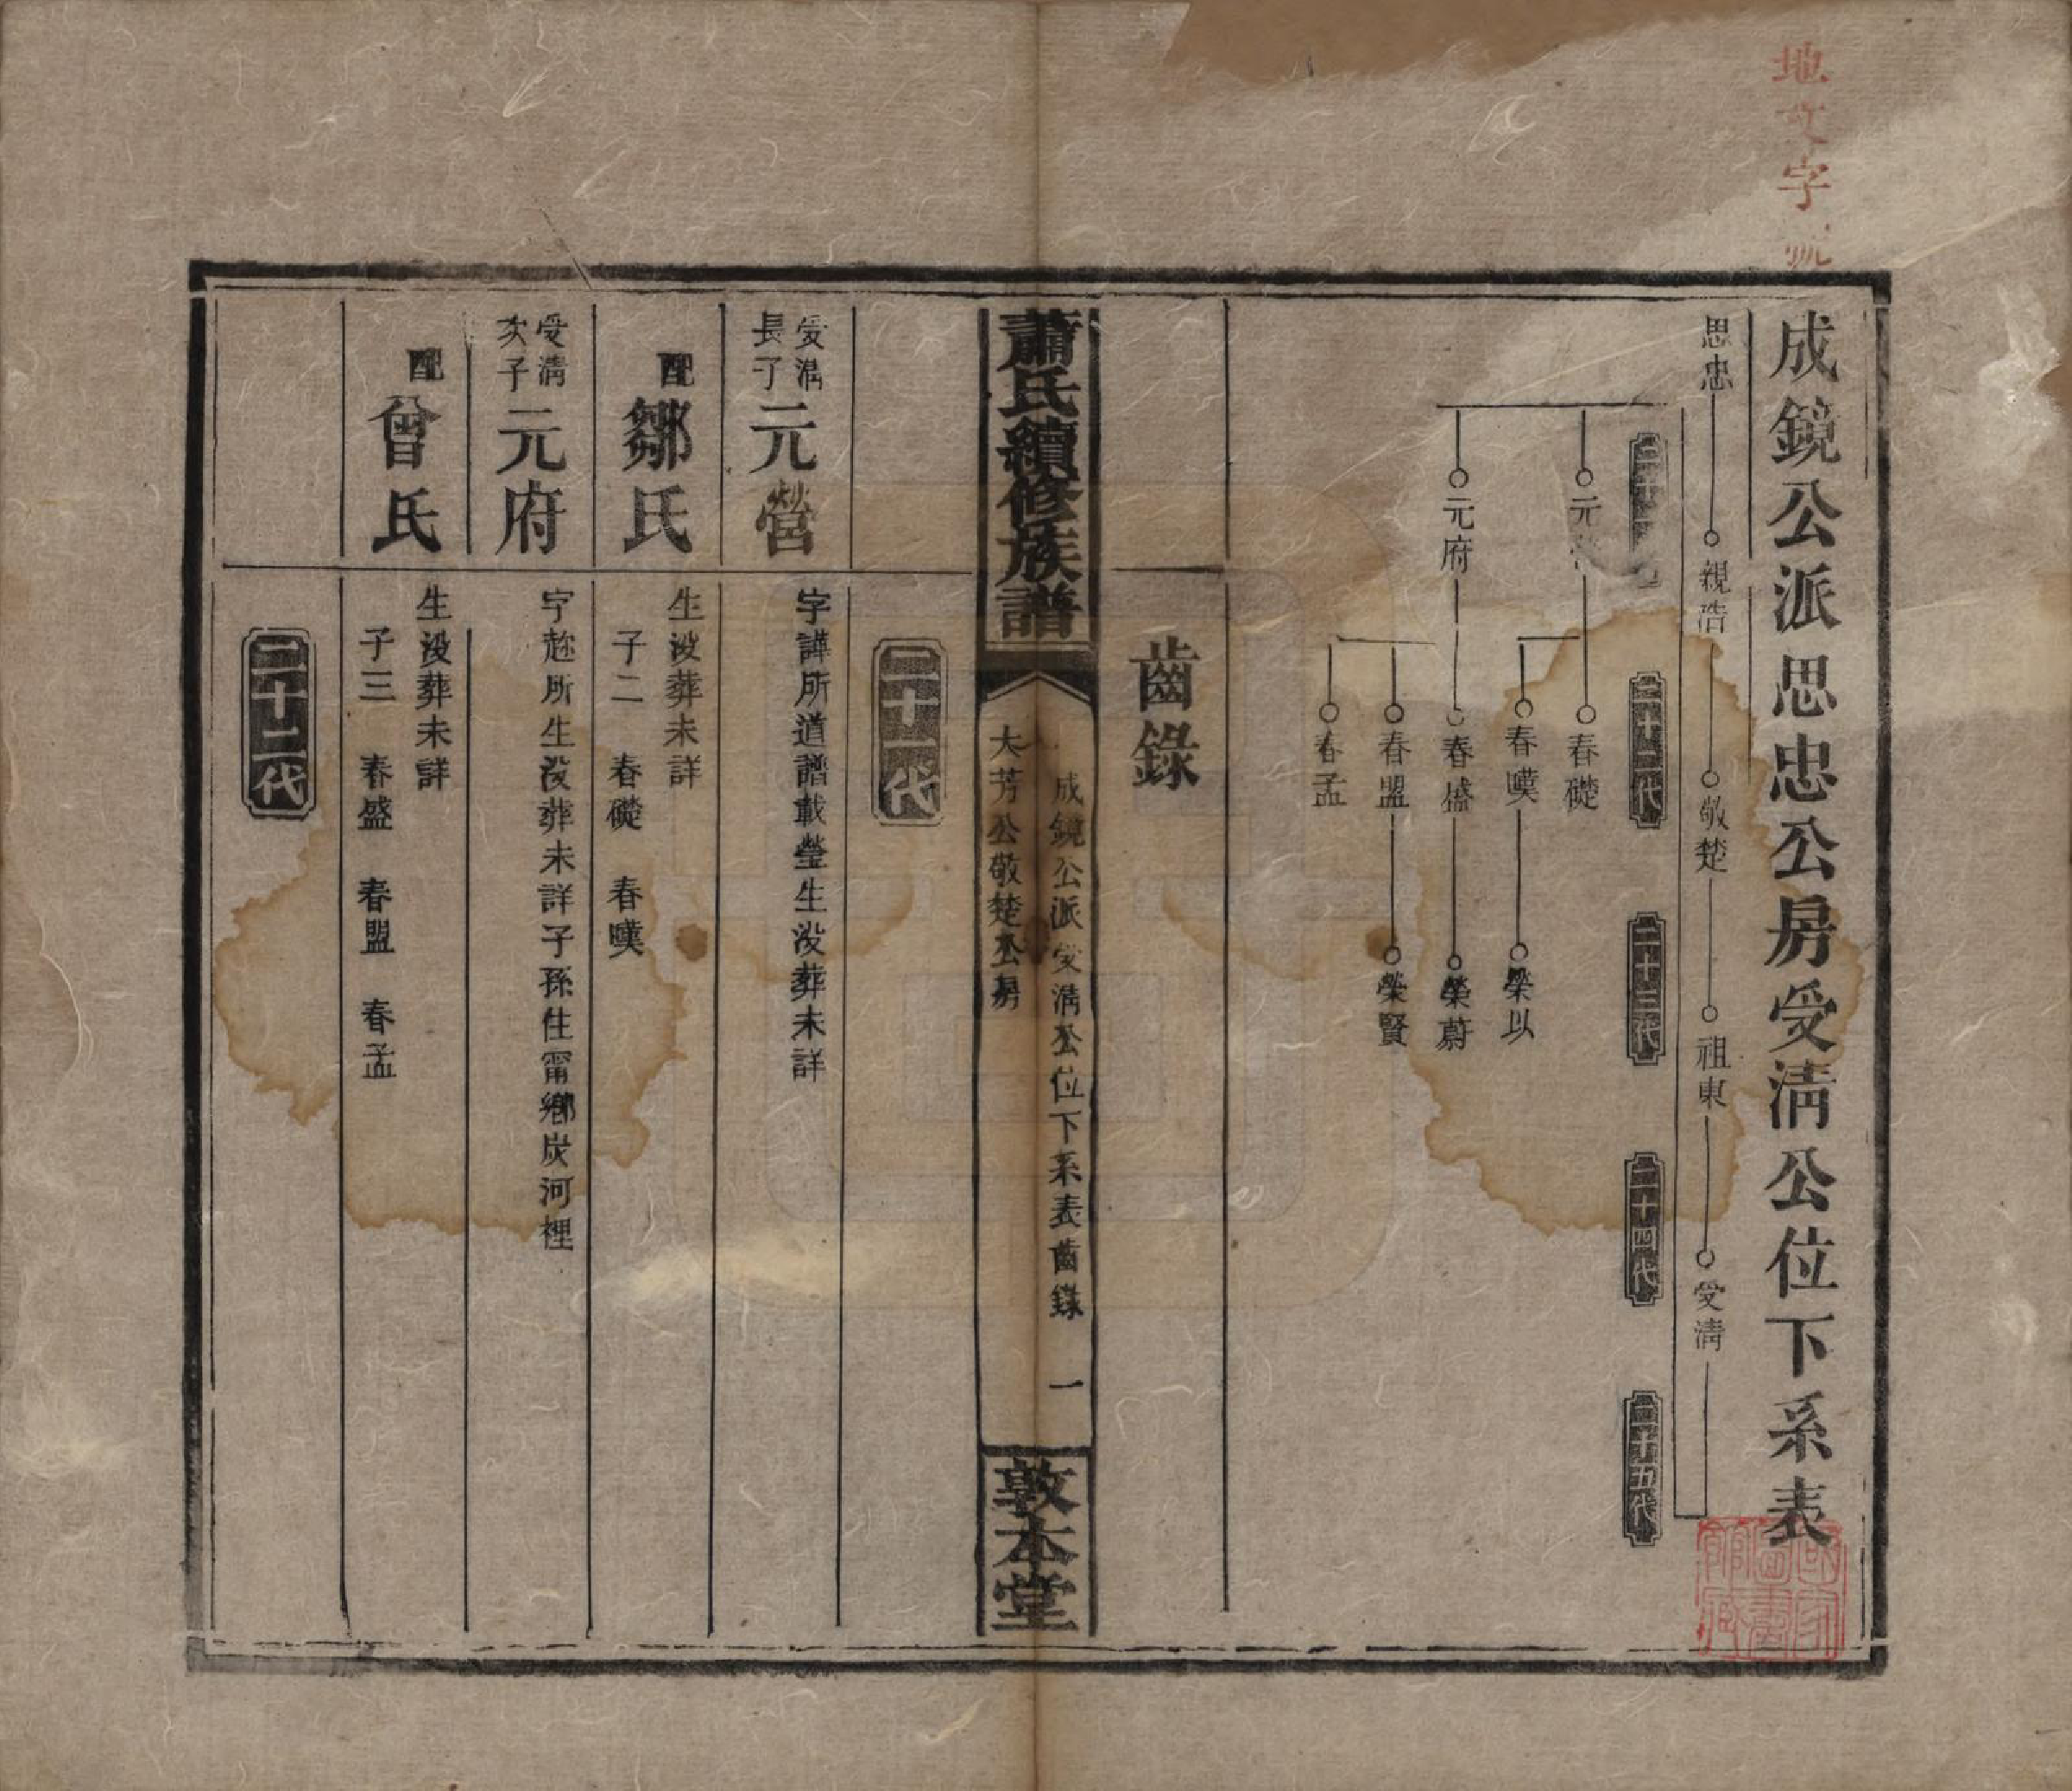 地文字號
成鏡公派思忠公房受清公位下系表
思忠 親浩 敬楚 祖東 受清
二十二代 二十三代 二十四代 二十五代
元 春礎
春暵 榮以
元府 春盛 榮蔚
春盟 榮賢
春孟
齒錄
蕭氏續修族譜
成鏡公派受清公位下系表齒錄 一
大芳公敬楚公房
敦本堂
二十一代
受清長子 元營 字譁所道譜載瑩生没葬未詳
配鄒氏 生没葬未詳
子二 春礎 春暵
受清次子 元府 字趂所生没葬未詳子孫住甯鄉炭河裡
配曾氏 生没葬未詳
子三 春盛 春盟 春孟
二十二代